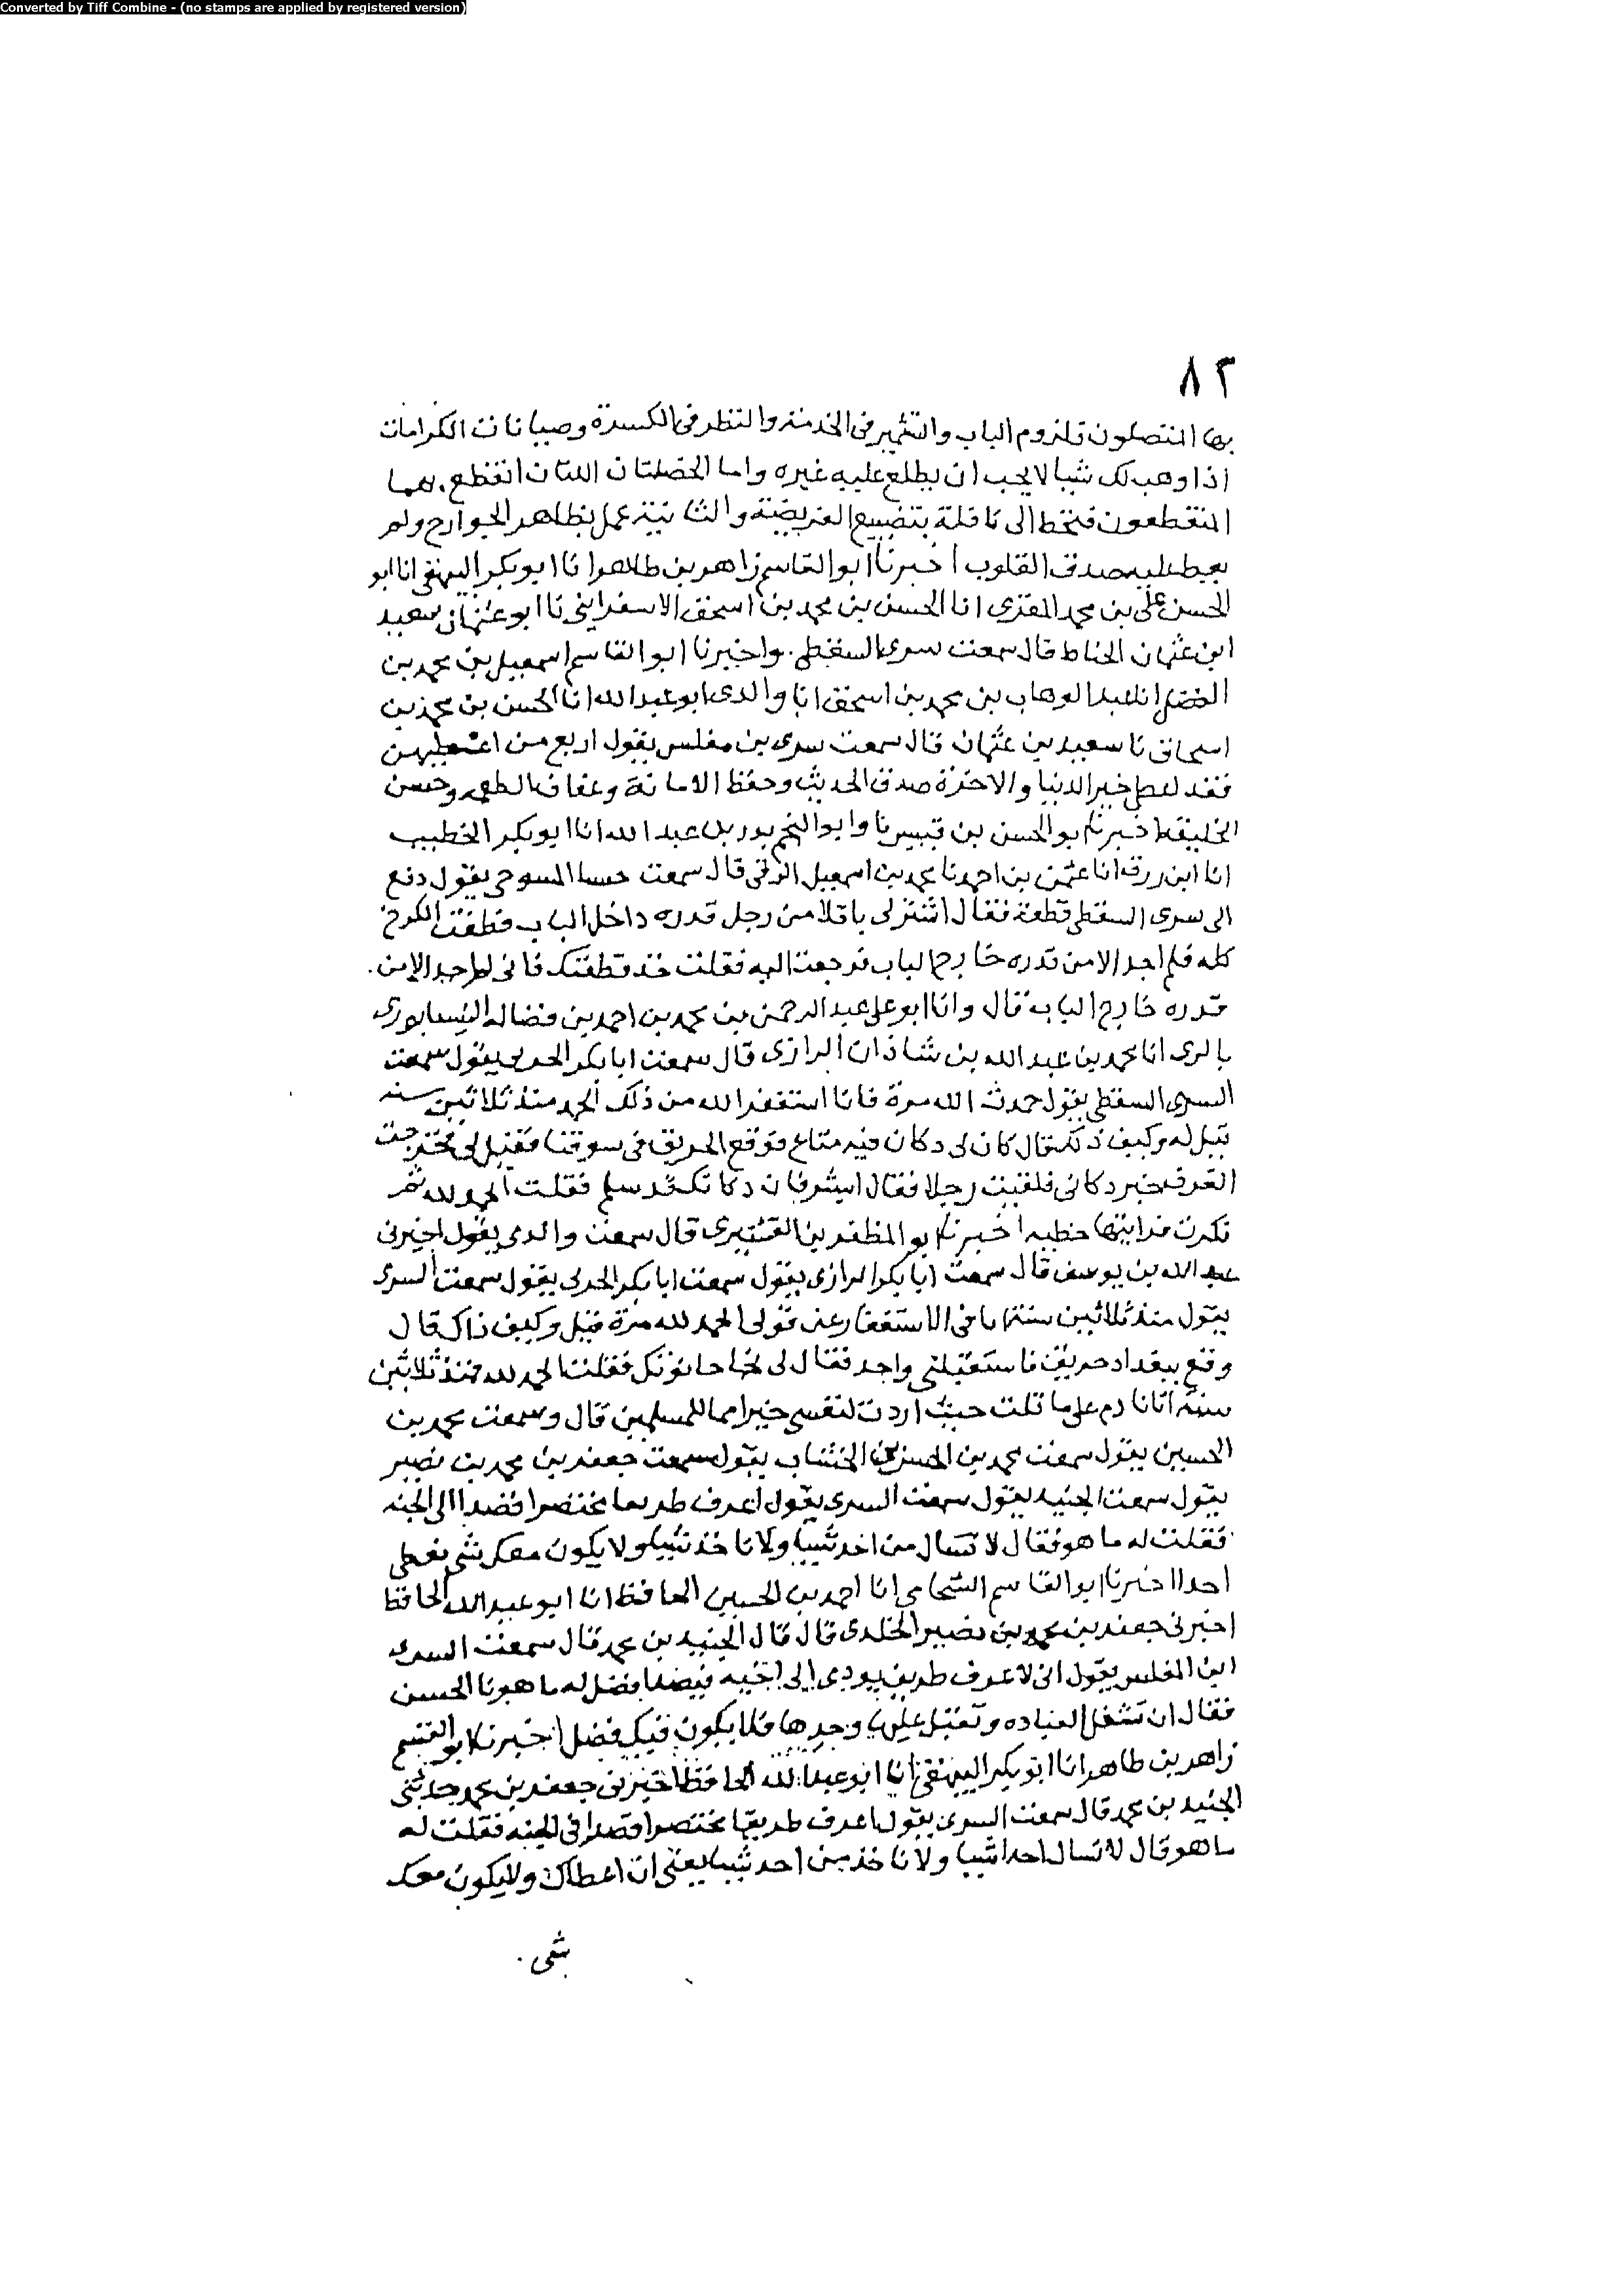 Converted by Tiff Combine - (no stamps are applied by registered version)
٨٢
بها المتصلون فلزوم الباب والتشمير في الخدمة والنظر في الكسرة وصيانات الكرامات
اذا وهب لك شيا لا يحب ان يطلع عليه غيره واما الخصلتان اللتان انقطع بهما
المنقطعون فتخط الى نافلة بتضييع الفريضة والثانية عمل بظاهر الجوارح ولم
يعط عليه صدق القلوب اخبرنا ابو القاسم زاهر بن طاهر انا ابو بكر البيهقي انا ابو
الحسن علي بن محمد المقري انا الحسن بن محمد بن اسحق الاسفرايني نا ابو عثمان سعيد
ابن عثمان الخياط قال سمعت سري السقطي. واخبرنا ابو القاسم اسمعيل بن محمد بن
الفضل انا عبد الوهاب بن محمد بن اسحق انا والدي ابو عبد الله انا الحسن بن محمد بن
اسحاق نا سعيد بن عثمان قال سمعت سري بن مغلس يقول اربع من اعطيهن
فقد اعطي خير الدنيا والاخرة صدق الحديث وحفظ الامانة وعفاف الطعم وحسن
الخليقة اخبرنا ابو الحسن بن قبيس نا وابو النجم بدر بن عبد الله انا ابو بكر الخطيب
انا ابن رزق انا عثمن بن احمد نا محمد بن اسمعيل الرقي قال سمعت حسنا المسوحي يقول دفع
الى سري السقطي قطعة فقال اشتر لي باقلا من رجل قدره داخل الباب فطفت الكرخ
كله فلم اجد الا من قدره خارج الباب فرجعت اليه فقلت خذ قطعتك فاني لم اجد الا من.
قدره خارج الباب قال وانا ابو علي عبد الرحمن بن محمد بن احمد بن فضاله النيسابوري
بالري انا محمد بن عبد الله بن شاذان الرازي قال سمعت ابا بكر الحربي يقول سمعت
السري السقطي يقول حمدت الله مرة فانا استغفر الله من ذلك الحمد منذ ثلاثين سنه
قيل له وكيف ذلك قال كان لي دكان فيه متاع فوقع الحريق في سوقنا فقيل لي فخرجت
اتعرف خبر دكاني فلقيت رجلا فقال ابشر فان دكانك قد سلم فقلت الحمد لله ثم
فكرت فرايتها خطيه اخبرنا ابو المظفر بن القشيري قال سمعت والدي يقول اخبرني
عبد الله بن يوسف قال سمعت ابا بكر الرازي يقول سمعت ابا بكر الحربي يقول سمعت السري
يقول منذ ثلاثين سنة انا في الاستغفار عن قولي الحمد لله مرة قيل وكيف ذاك قال
وقع ببغداد حريق فاستقبلني واحد فقال لي نجا حانوتك فقلت الحمد لله فمنذ ثلاثين
سنة انا نادم على ما قلت حيث اردت لنفسي خيرا مما للمسلمين قال وسمعت محمد بن
الحسين يقول سمعت محمد بن الحسن بن الخشاب يقول سمعت جعفر بن محمد بن نصير
يقول سمعت الجنيد يقول سمعت السري يقول اعرف طريقا مختصرا قصدا الى الجنه
فقلت له ما هو فقال لا تسال من احد شيا ولا تاخذ شيا ولا يكون معك شي تعطي
احدا اخبرنا ابو القاسم الشحامي انا احمد بن الحسين الحافظ انا ابو عبد الله الحافظ
اخبرني جعفر بن محمد بن نصير الخلدي قال قال الجنيد بن محمد قال سمعت السري
ابن المغلس يقول اني لاعرف طريق يودي الى الجنه قصدا فقيل له ما هو يا ابا الحسن
فقال ان تشتغل بالعباده وتقبل عليها وحدها فلا يكون فيك فضل اخبرنا ابو القسم
زاهر بن طاهر انا ابو بكر البيهقي انا ابو عبد الله الحافظ اخبرني جعفر بن محمد حدثني
الجنيد بن محمد قال سمعت السري يقول اعرف طريقا مختصرا قصدا في الجنه فقلت له
ما هو قال لا تسال احدا شيا ولا تاخذ من احد شيا يعني ان اعطاك ولا يكون معك
شي.